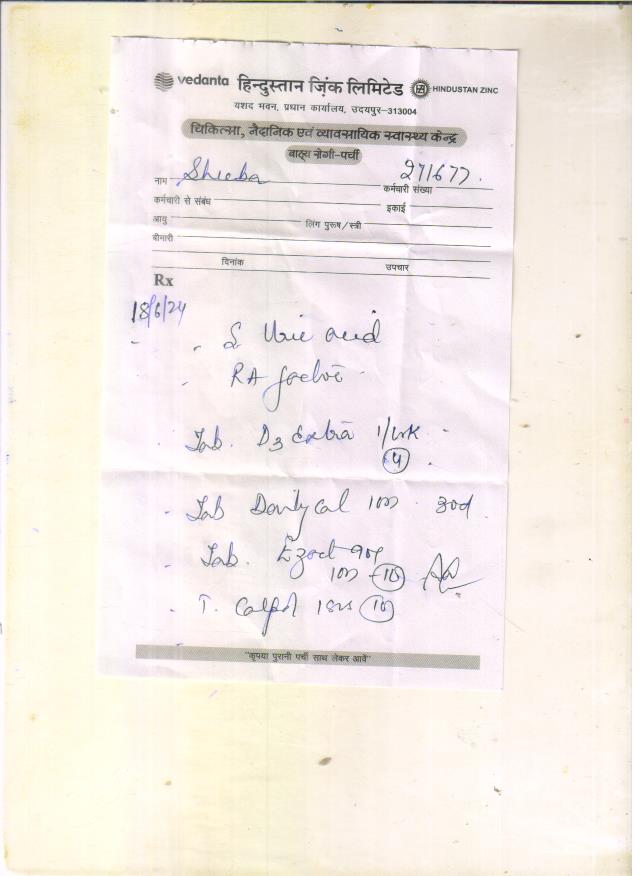 vedanta हिन्दुस्तान ज़िंक लिमिटेड HINDUSTAN ZINC
यशद भवन, प्रधान कार्यालय, उदयपुर–313004
चिकित्सा, नैदानिक एवं व्यावसायिक स्वास्थ्य केन्द्र
बाह्य रोगी-पर्ची
नाम Sheeba कर्मचारी संख्या 271677.
कर्मचारी से संबंध इकाई
आयु लिंग पुरूष/स्त्री
बीमारी
दिनांक उपचार
Rx
18/6/24
- S Uric acid
- RA factor
Tab. D3 Extra 1/wk
4
- Tab 1
- Tab.
10
- T. Calpol 10
"कृपया पुरानी पर्ची साथ लेकर आवें"